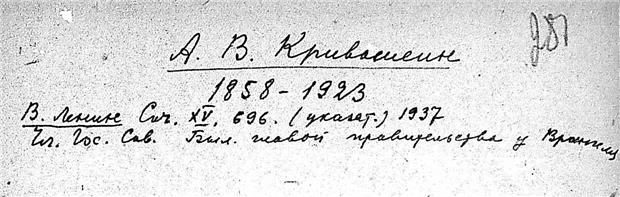 281
А. В. Кривошеин
1858-1923
В. Ленин Соч. XV, 696. (указат.) 1937
Чл. Гос. Сов. Был. главой правительства у Врангеля